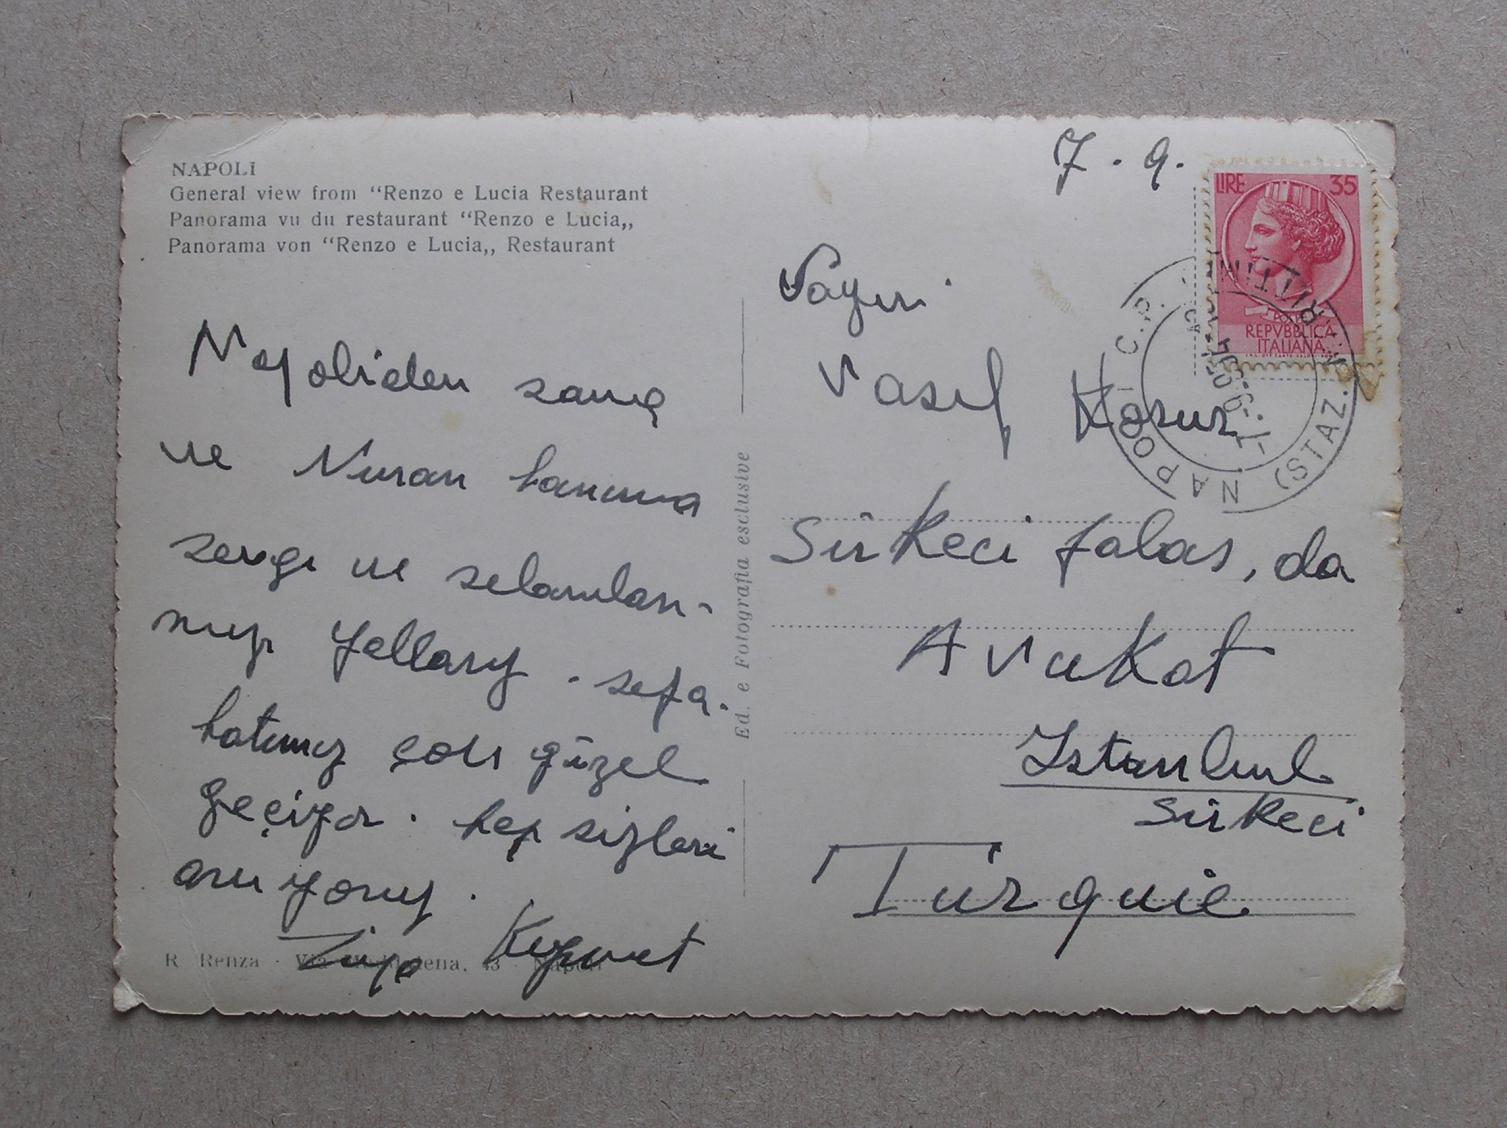 NAPOLI
General view from “Renzo e Lucia Restaurant
Panorama vu du restaurant “Renzo e Lucia,,
Panorama von “Renzo e Lucia,, Restaurant
Napoliden sana
ve Nuran hanıma
sevgi ve selamları-
mızı yollarız. seya-
hatımız çok güzel
geçiyor. hep sizleri
anıyoruz.
R Renza - Via 43 - Napoli
Ed. e Fotografia esclusive
7.9.
LIRE 35
REPVBBLICA
ITALIANA
NAPOLI C.P. (STAZ. MARITTIMA)
Sayın
Vasıf
Sirkeci Palas, da
Avukat
Istanbul
Sirkeci
Turquie